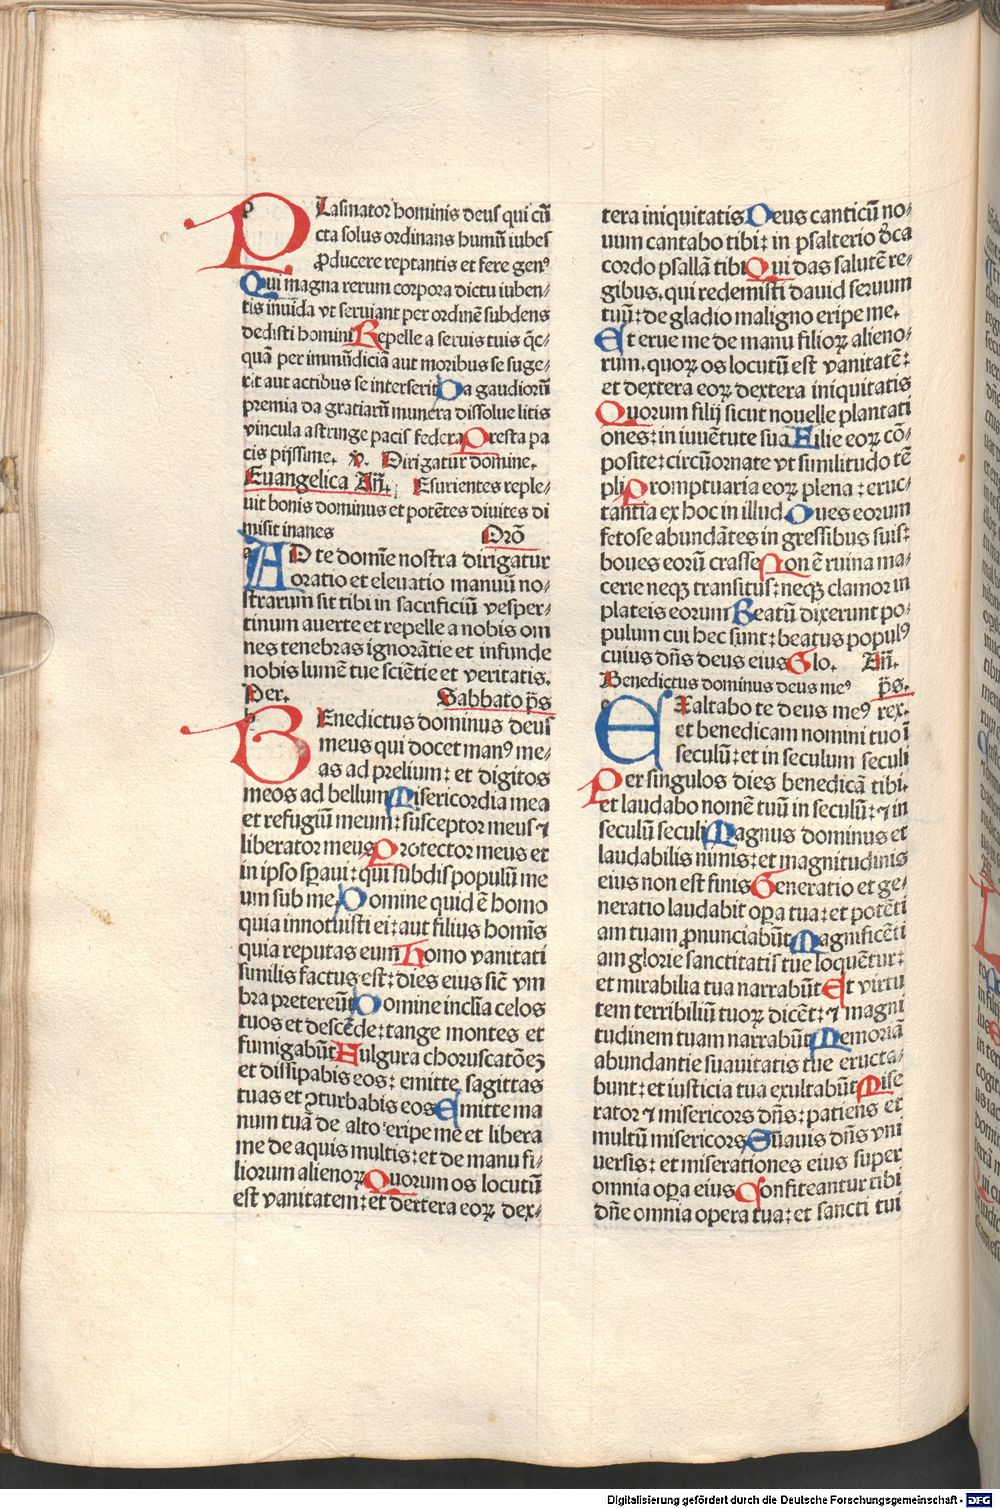 PLasmator hominis deus qui cū
cta solus ordinans humū iubes
ꝓducere reptantis et fere genꝰ
Qui magna rerum corpora dictu iuben/
tis inuida vt seruiant per ordinē subdens
dedisti homini Repelle a seruis tuis q̄c/
quā per immūdiciā aut moribus se suge/
rit aut actibus se interserit Da gaudiorū
premia da gratiarū munera dissolue litis
vincula astringe pacis federa Presta pa
cis pijssime. v. Dirigatur domine.
Euangelica Añ. Esurientes reple/
uit bonis dominus et potētes diuites di
misit inanes Orō
AD te domīe nostra dirigatur
oratio et eleuatio manuū no/
strarum sit tibi in sacrificiū vesper/
tinum auerte et repelle a nobis om
nes tenebras ignorātie et infunde
nobis lumē tue sciētie et veritatis.
Per. Sabbato p̄s
BEnedictus dominus deus
meus qui docet manꝰ me/
as ad prelium: et digitos
meos ad bellum Misericordia mea
et refugiū meum: susceptor meus ⁊
liberator meus Protector meus et
in ipso sꝑaui: qui subdis populū me
um sub me Domine quid ē homo
quia innotuisti ei: aut filius homīs
quia reputas eum Homo vanitati
similis factus est: dies eius sic̄ vm
bra pretereūt Domine inclīa celos
tuos et descēde: tange montes et
fumigabūt Fulgura choruscatōeꝫ
et dissipabis eos: emitte sagittas
tuas et ꝯturbabis eos Emitte ma
num tuā de alto eripe me et libera
me de aquis multis: et de manu fi/
liorum alienoꝝ Quorum os locutū
est vanitatem: et dextera eoꝝ dex/
tera iniquitatis Deus canticū no/
uum cantabo tibi: in psalterio d̄ca
cordo psallā tibi Qui das salutē re/
gibus. qui redemisti dauid seruum
tuū: de gladio maligno eripe me.
Et erue me de manu filioꝝ alieno/
rum. quoꝝ os locutū est vanitatē:
et dextera eoꝝ dextera iniquitatis
Quorum filij sicut nouelle plantati
ones: in iuuētute sua Filie eoꝝ cō/
posite: circūornate vt similitudo tē
pli Promptuaria eoꝝ plena: eruc/
tantia ex hoc in illud Oues eorum
fetose abundātes in gressibus suis:
boues eorū crasse Non ē ruina ma/
cerie neqꝫ transitus: neqꝫ clamor in
plateis eorum Beatū dixerunt po/
pulum cui hec sunt: beatus populꝰ
cuius dn̄s deus eius Glo. Añ.
Benedictus dominus deus meꝰ p̄s.
EXaltabo te deus meꝰ rex.
et benedicam nomini tuo ī
seculū: et in seculum seculi
Per singulos dies benedicā tibi.
et laudabo nomē tuū in seculū: ⁊ in
seculū seculi Magnus dominus et
laudabilis nimis: et magnitudinis
eius non est finis Generatio et ge/
neratio laudabit oꝑa tua: et potēti
am tuam ꝓnunciabūt Magnificēti
am glorie sanctitatis tue loquētur:
et mirabilia tua narrabūt Et virtu
tem terribiliū tuoꝝ dicēt: ⁊ magni
tudinem tuam narrabūt Memoriā
abundantie suauitatis tue eructa/
bunt: et iusticia tua exultabūt Mise
rator ⁊ misericors dn̄s: patiens et
multū misericors Suauis dn̄s vni
uersis: et miserationes eius super
omnia oꝑa eius Confiteantur tibi
dn̄e omnia opera tua: et sancti tui
Digitalisierung gefördert durch die Deutsche Forschungsgemeinschaft - DFG